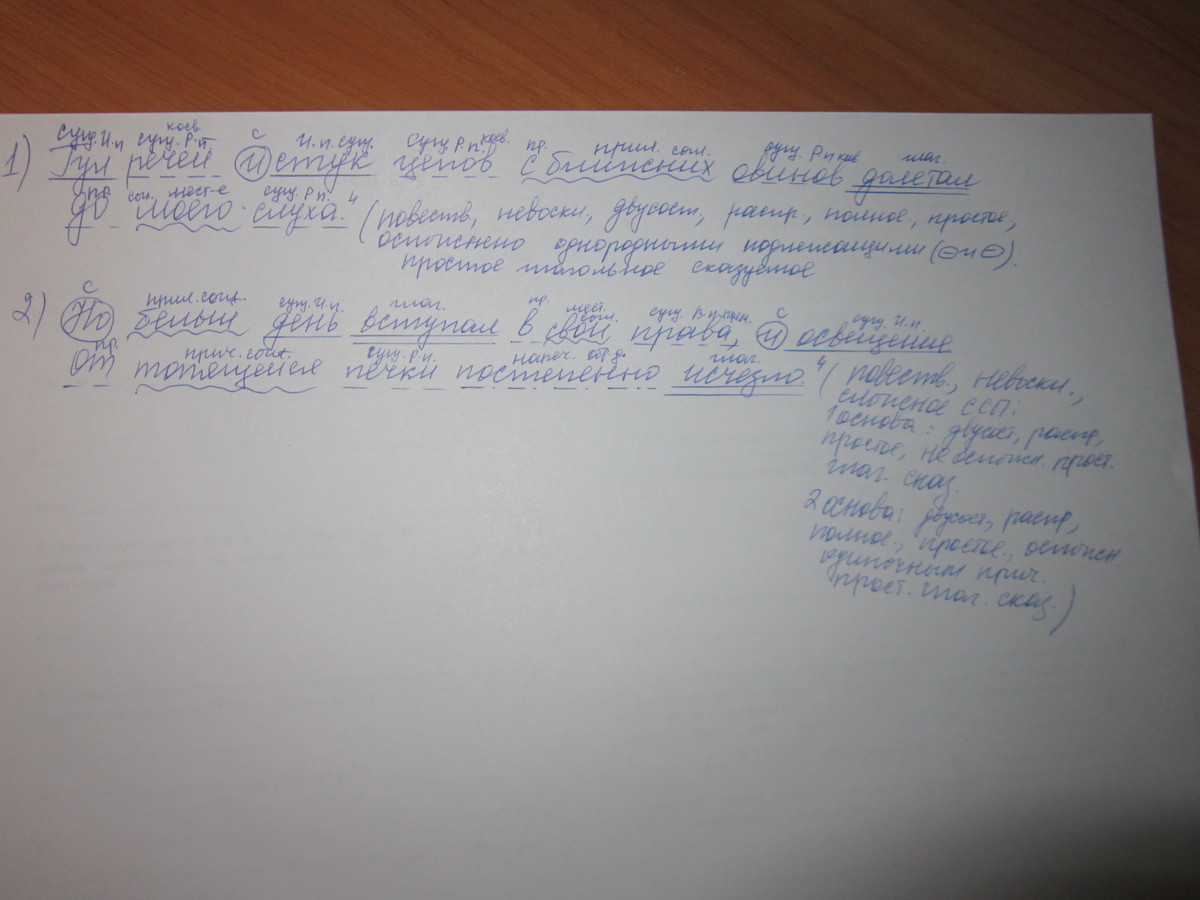 сущ. И.п сущ. Р.п. косв. с И.п. сущ. сущ. Р.п. косв. пр. прил. согл. сущ. Р п кос глаг.
1) Гул речей и стук цепов с ближних овинов долетал
пр. согл. мест-е сущ. Р п.
до моего слуха.⁴ (повеств, невоскл., двусост, распр., полное, простое,
осложнено однородными подлежащими (⊖ и ⊖).
простое глагольное сказуемое
с прил. согл. сущ. И.п. глаг. пр. мест. согл. сущ. В.п с сущ. И.п.
2) Но белый день вступал в свои права, и освещение
пр. прич. согл. сущ. Р.п. нареч. обр. д. глаг.
от топящейся печки постепенно исчезло.⁴ (повеств., невоскл.,
сложное ССП:
1 основа: двусост, распр,
простое, не осложн. прост.
глаг. сказ.
2 основа: двусост, распр,
полное, простое, осложн.
одиночным прич.
прост. глаг. сказ.)